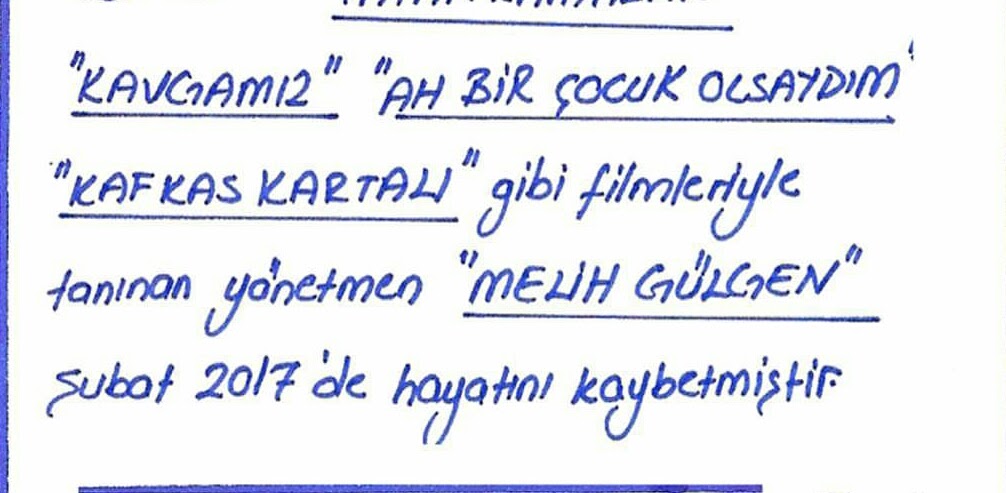 "KAVGAMIZ" "AH BİR ÇOCUK OLSAYDIM"
"KAFKAS KARTALI" gibi filmleriyle
tanınan yönetmen "MELİH GÜLGEN"
şubat 2017'de hayatını kaybetmiştir.